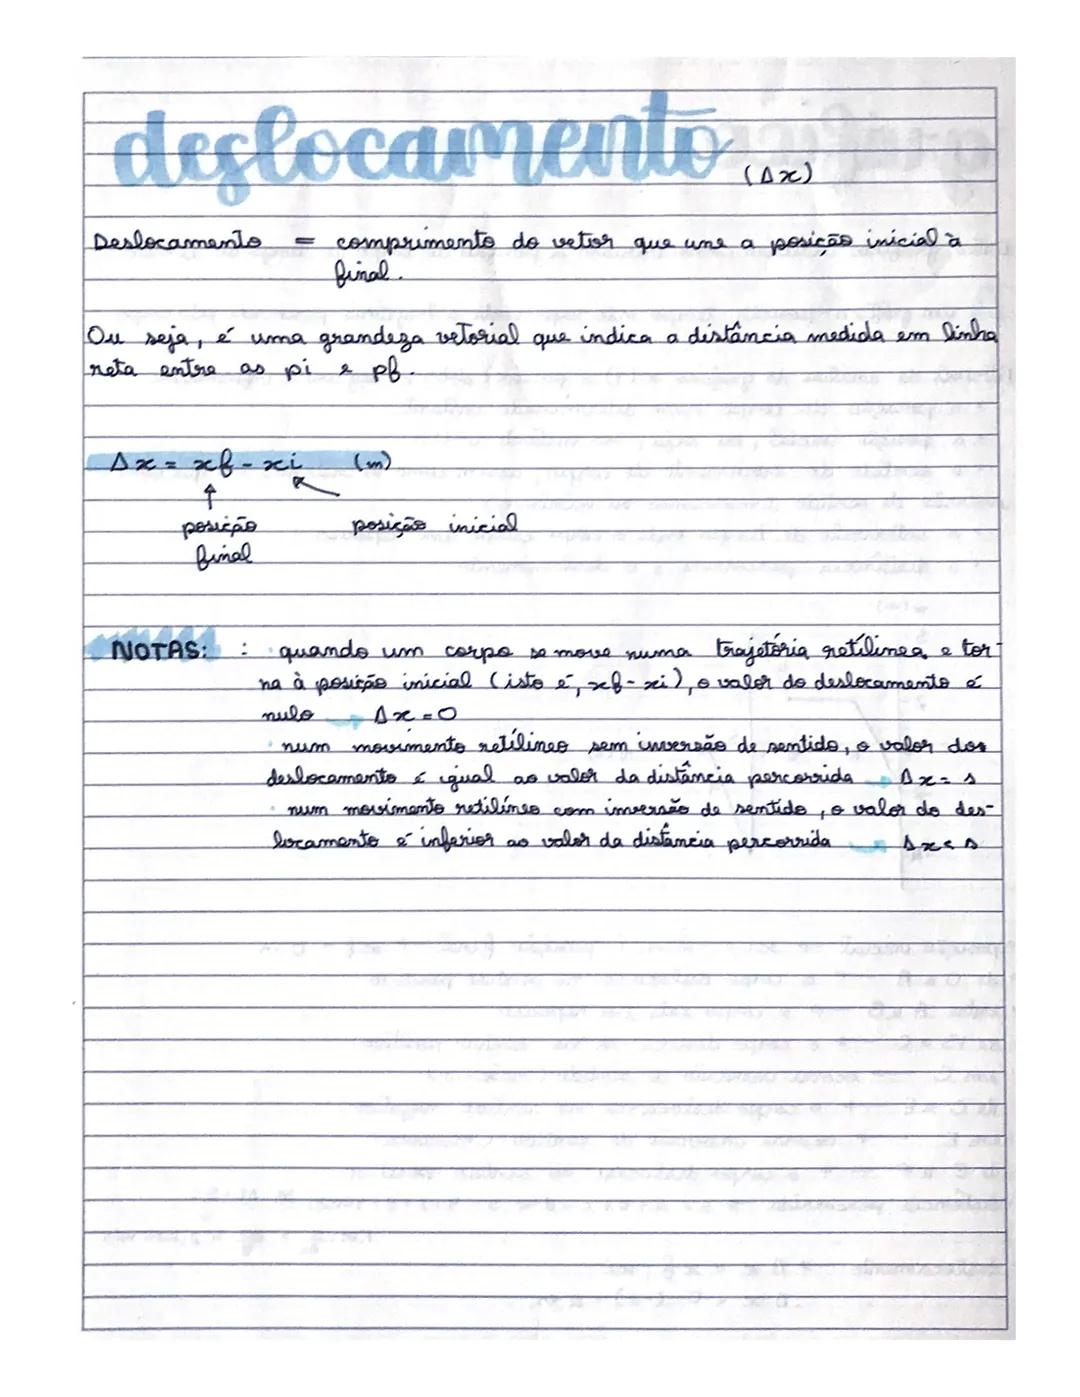 deslocamento (Δx)
Deslocamento = comprimento do vetor que une a posição inicial à
final.
Ou seja, é uma grandeza vetorial que indica a distância medida em linha
reta entre as pi e pf.
Δx = xf - xi (m)
posição posição inicial
final
NOTAS: : • quando um corpo se move numa trajetória retilínea e tor-
na à posição inicial (isto é, xf - xi), o valor do deslocamento é
nulo → Δx = 0
• num movimento retílineo sem inversão de sentido, o valor dos
deslocamento é igual ao valor da distância percorrida → Δx = s
• num movimento retilíneo com inversão de sentido, o valor do des-
locamento é inferior ao valor da distância percorrida → Δx < s